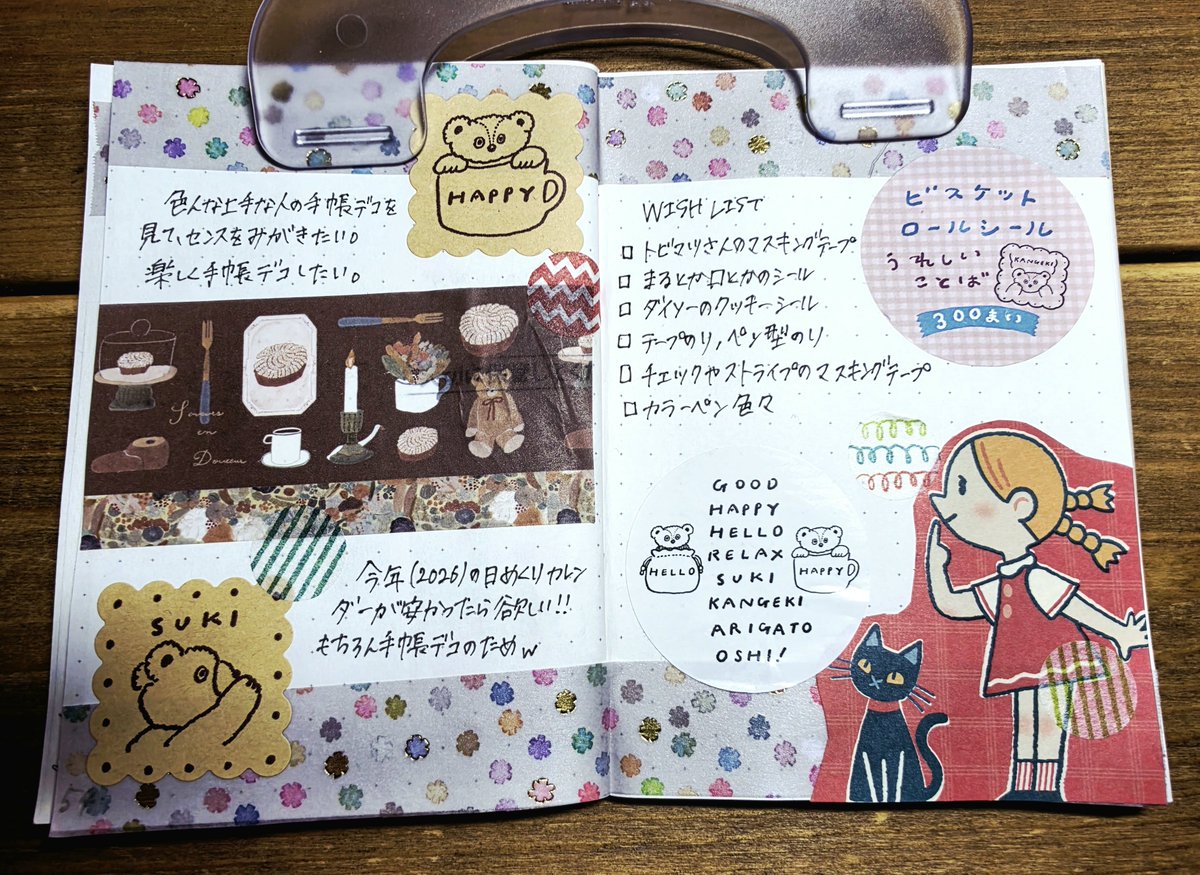 HAPPY
色んな上手な人の手帳デコを
見て、センスをみがきたい。
楽しく手帳デコしたい。
en
Douceur
SUKI
今年(2026)の日めくりカレン
ダーが安かったら欲しい!!
もちろん手帳デコのためw
WISH LIST
トビマツさんのマスキングテープ
まるとか口とかのシール
ダイソーのクッキーシール
テープのり,ペン型のり
チェックやストライプのマスキングテープ
カラーペン色々
ビスケット
ロールシール
うれしい
ことば
KANGEKI
300まい
GOOD
HAPPY
HELLO
RELAX
SUKI
KANGEKI
ARIGATO
OSHI!
HELLO
HAPPY